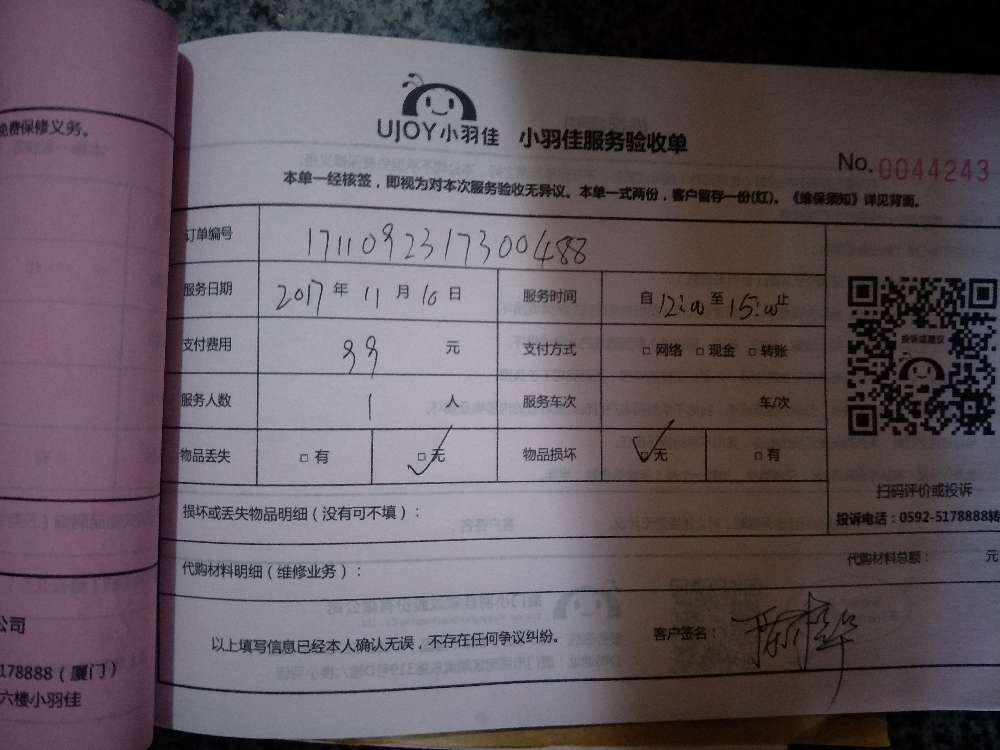 免费保修义务。
公司
178888（厦门）
六楼小羽佳
UJOY小羽佳 小羽佳服务验收单
No. 0044243
本单一经核签，即视为对本次服务验收无异议。本单一式两份，客户留存一份(红)。《维保须知》详见背面。
订单编号 1711092317300488
服务日期 2017 年 11 月 10 日 服务时间 自 12:00 至 15:00 止
支付费用 99 元 支付方式 □ 网络 □ 现金 □ 转账
服务人数 1 人 服务车次 车/次
物品丢失 □ 有 □ 无 物品损坏 □ 无 □ 有
投诉或建议
扫码评价或投诉
投诉电话：0592-5178888转
损坏或丢失物品明细（没有可不填）：
代购材料明细（维修业务）： 代购材料总额： 元
以上填写信息已经本人确认无误，不存在任何争议纠纷。 客户签名：